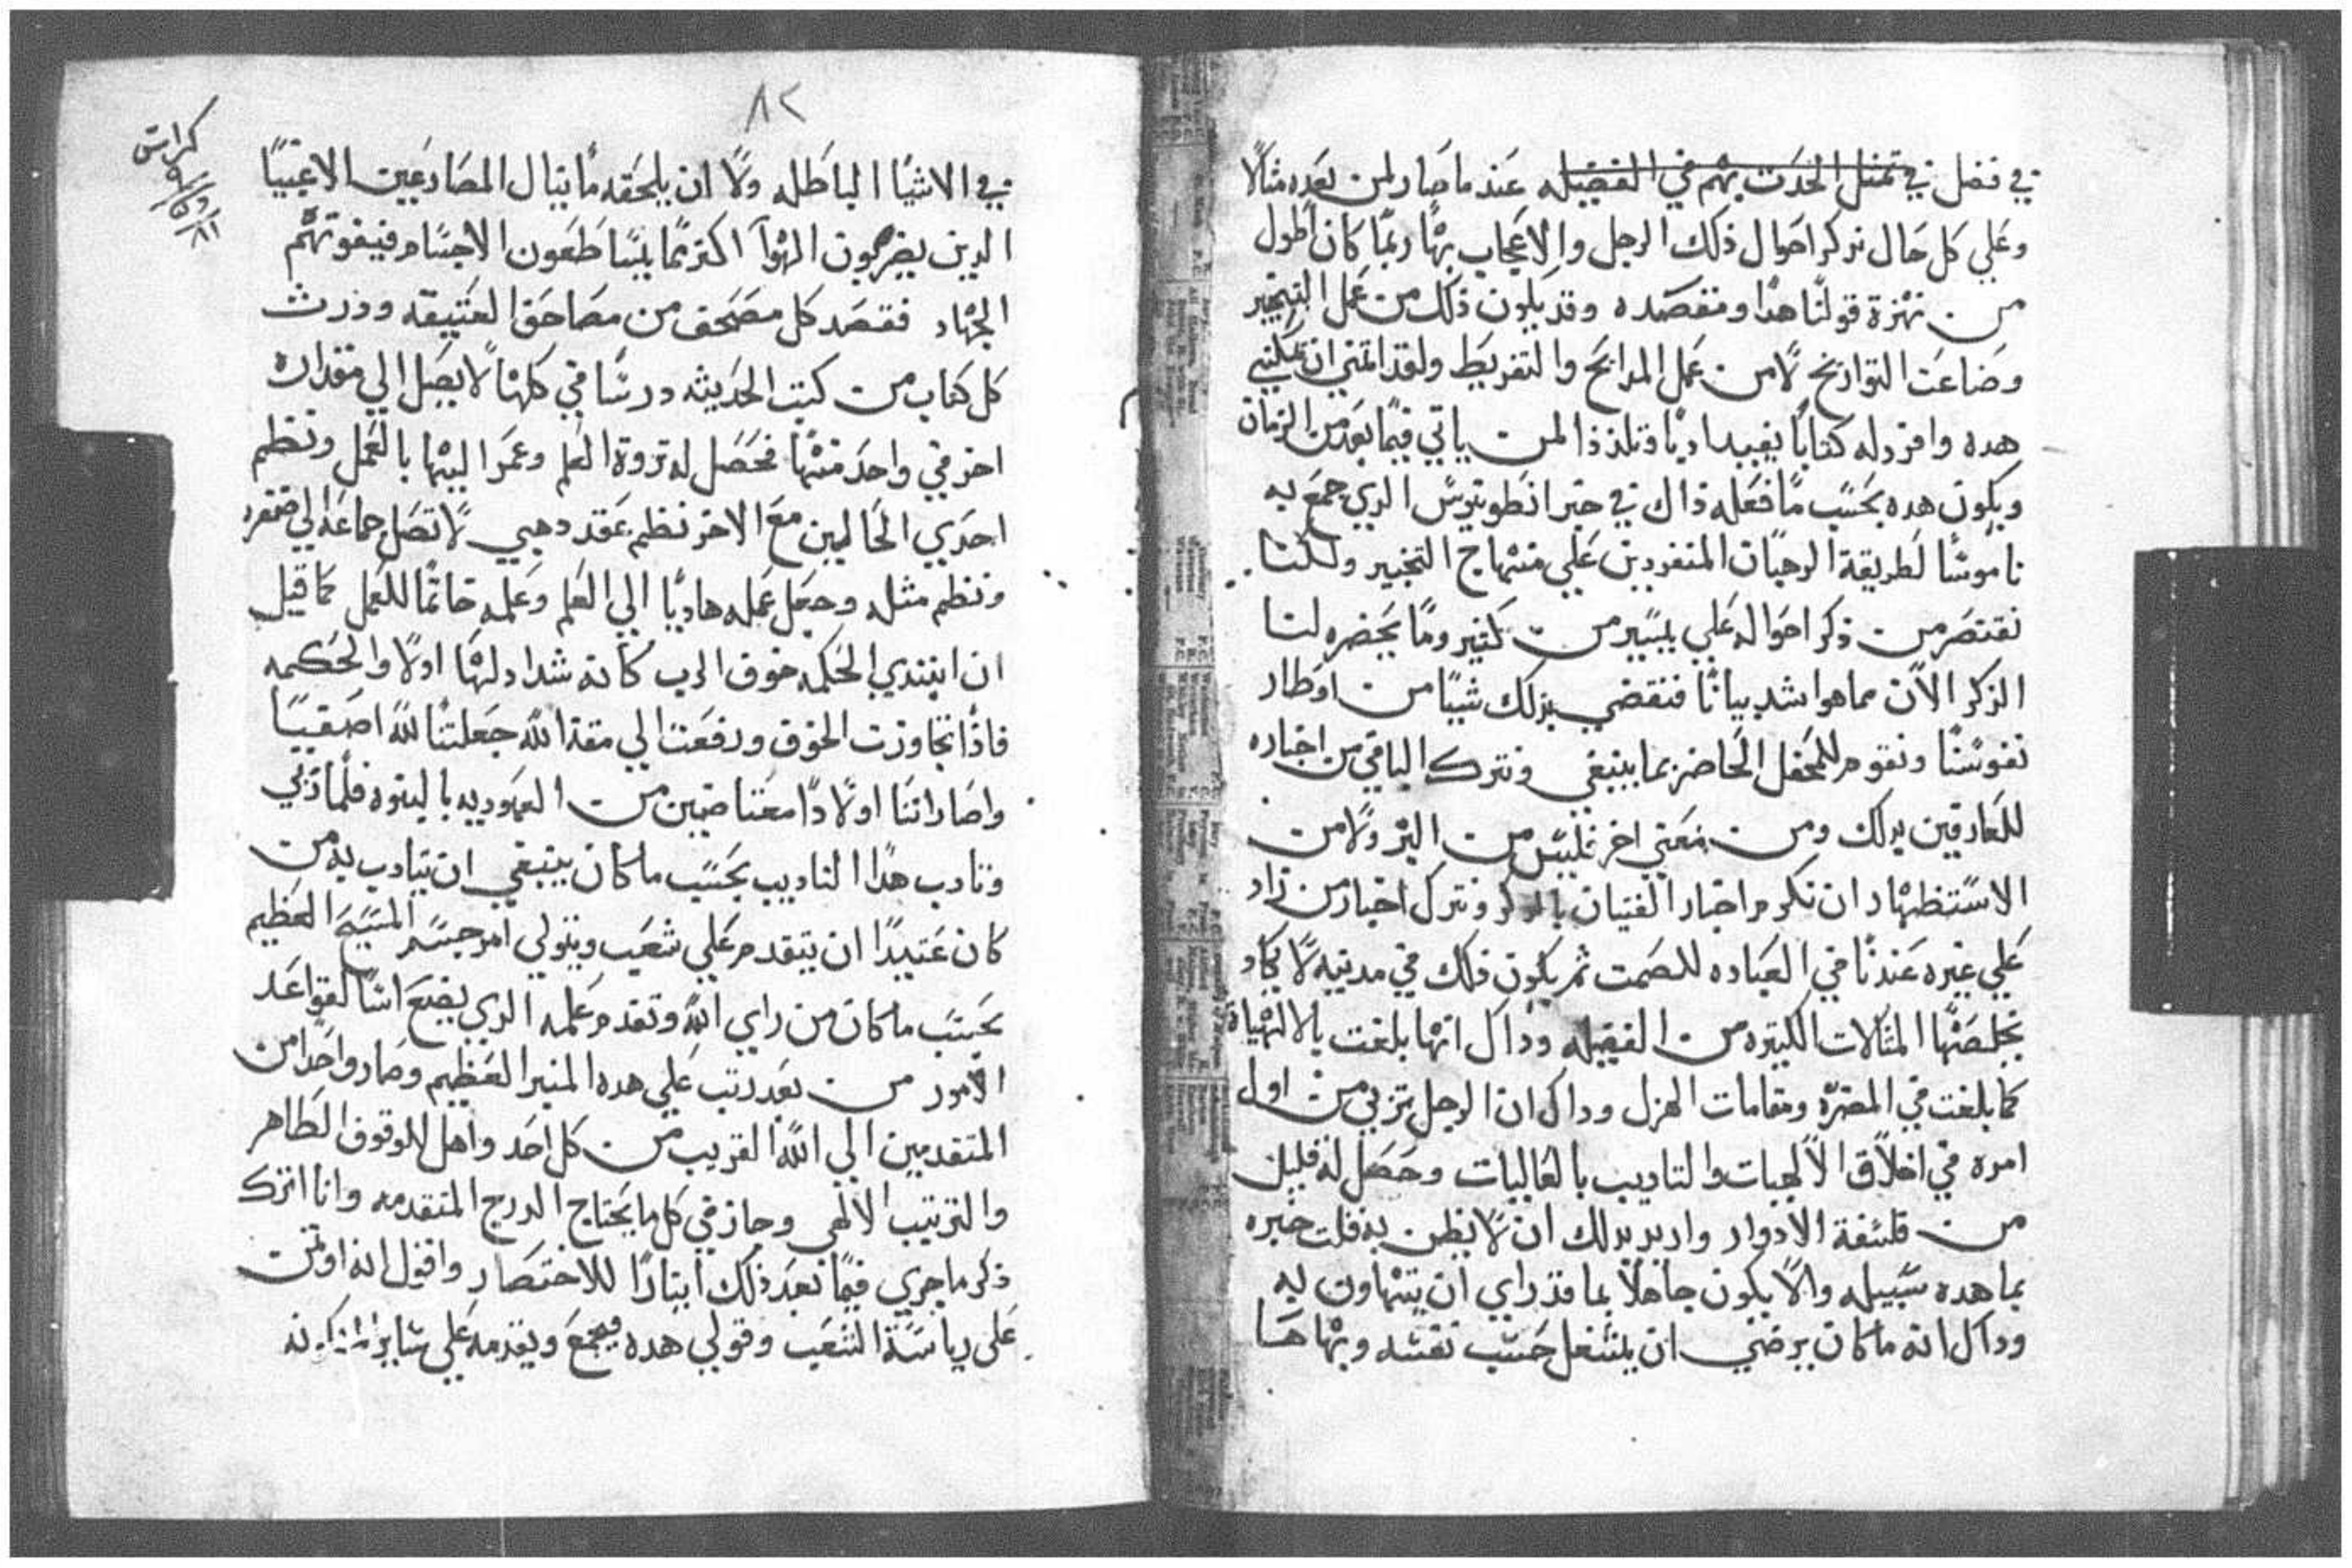 في فضل في تمثل الحدث بهم في الفضيله عند ما صار لمن بعده مثالا
وعلي كل حال نذكر احوال ذلك الرجل والاعجاب بها ربما كان اطول
من نهزة قولنا هدا ومقصده وقد يكون ذلك من عمل التخبير
وضاعت التواريخ لا من عمل المدايح والتقريظ ولقد اتمني ان يمكنني
هده وافرد له كتابا يفيد ادبا وتلذذا لمن ياتي فيما بعد من الزمان
ويكون هده بحسب ما فعله ذاك في خبر انطونيوس الدي جمع به
ناموسا لطريقة الرهبان المتفردين علي منهاج التخبير ولكننا
نقتصر من ذكر احواله علي يسير من كثير وما يحضره لنا
الذكر الان مما هو اشد بيانا فنقضي بذلك شيا من اوطار
نفوسنا ونقوم للمحفل الحاضر بما ينبغي ونترك الباقي من اخباره
للعارفين بدلك ومن معني اخر فليس من البر ولا من
الاستظهار ان نكرم اخبار الفتيان بالدكر ونترك اخبار من زاد
علي غيره عندنا في العباده للصمت ثم يكون ذلك في مدينه لا يكاد
يخلصها المثالات الكثيره من الفضيله وداك انها بلغت بالالهياة
كما بلغت في المضرة ومقامات الهزل وداك ان الرجل تربي من اول
امره في اخلاق الالهيات والتاديب بالغاليات وحصل له قليل
من فلسفة الادوار واريد بدلك ان لا يظن به قلت خبره
بما هده سبيله والا يكون جاهلا بما قد راي ان يتهاون به
وداك انه ما كان يرضي ان يشغل حسب نفسه وبهاها
٨٢
كراس
في الاشيا الباطله ولا ان يلحقه ما ينال المصارعين الاغبيا
الدين يضربون الهوا اكثر مما يساطعون الاجسام فيفوتهم
الجهاد فقصد كل مصحف من مصاحف العتيقه ودرس
كل كتاب من كتب الحديثه درسا في كلها لا يصل الي مقداره
اخر في واحد منها فحصل له ثروة العلم وعمر اليها بالعمل ونظم
احدي الحالين مع الاخر نظم عقد دهبي لا تصل جماعه الي ضفره
ونظم مثله وجعل عمله هاديا الي العلم وعلمه خاتما للعمل كما قيل
ان ابتدي الحكمه خوف الرب كانه شد ادلها اولا والحكمه
فاذا تجاوزت الخوف ورفعت الي مقة الله جعلتنا لله اصفيا
واصارتنا اولادا معتاضين من العبوديه بالبنوه فلما تربي
وتادب هدا التاديب بحسب ما كان ينبغي ان يتادب به من
كان عتيدا ان يتقدم علي شعب ويتولي امر جسم المسيح العظيم
بحسب ما كان من راي الله وتقدم علمه الدي يضع اساً لقواعد
الامور من بعد رتب علي هده المنبر العظيم وصار واحدا من
المتقدمين الي الله القريب من كل احد واهل للوقوف الطاهر
والترتيب الالهي وجاز في كل ما يحتاج الدرج المتقدمه وانا اترك
ذكر ما جري فيما بعد ذلك ايثارا للاختصار واقول انه اوتمن
علي رياسة الشعب وقولي هده يجمع ويقدمه علي ساير